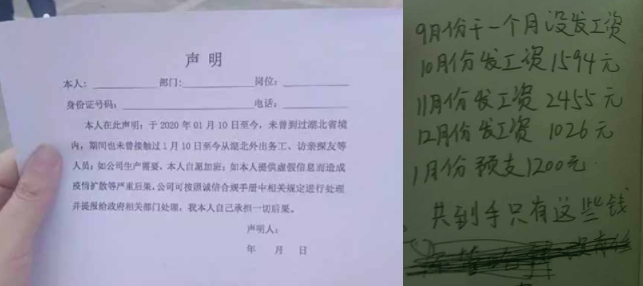 声明
本人:____________部门:____________岗位:____________
身份证号码:____________________电话:____________
本人在此声明:于 2020 年 01 月 10 日至今,未曾到过湖北省境
内,期间也未曾接触过 1 月 10 日至今从湖北外出务工、访亲探友等
人员;如公司生产需要,本人自愿加班;如本人提供虚假信息而造成
疫情扩散等严重后果,公司可按照诚信合规手册中相关规定进行处理
并提报给政府相关部门处理,我本人自己承担一切后果。
声明人:
年 月 日
9月份干一个月没发工资
10月份发工资1594元
11月份发工资2455元
12月份发工资1026元
1月份预支1200元.
共到手只有这些钱